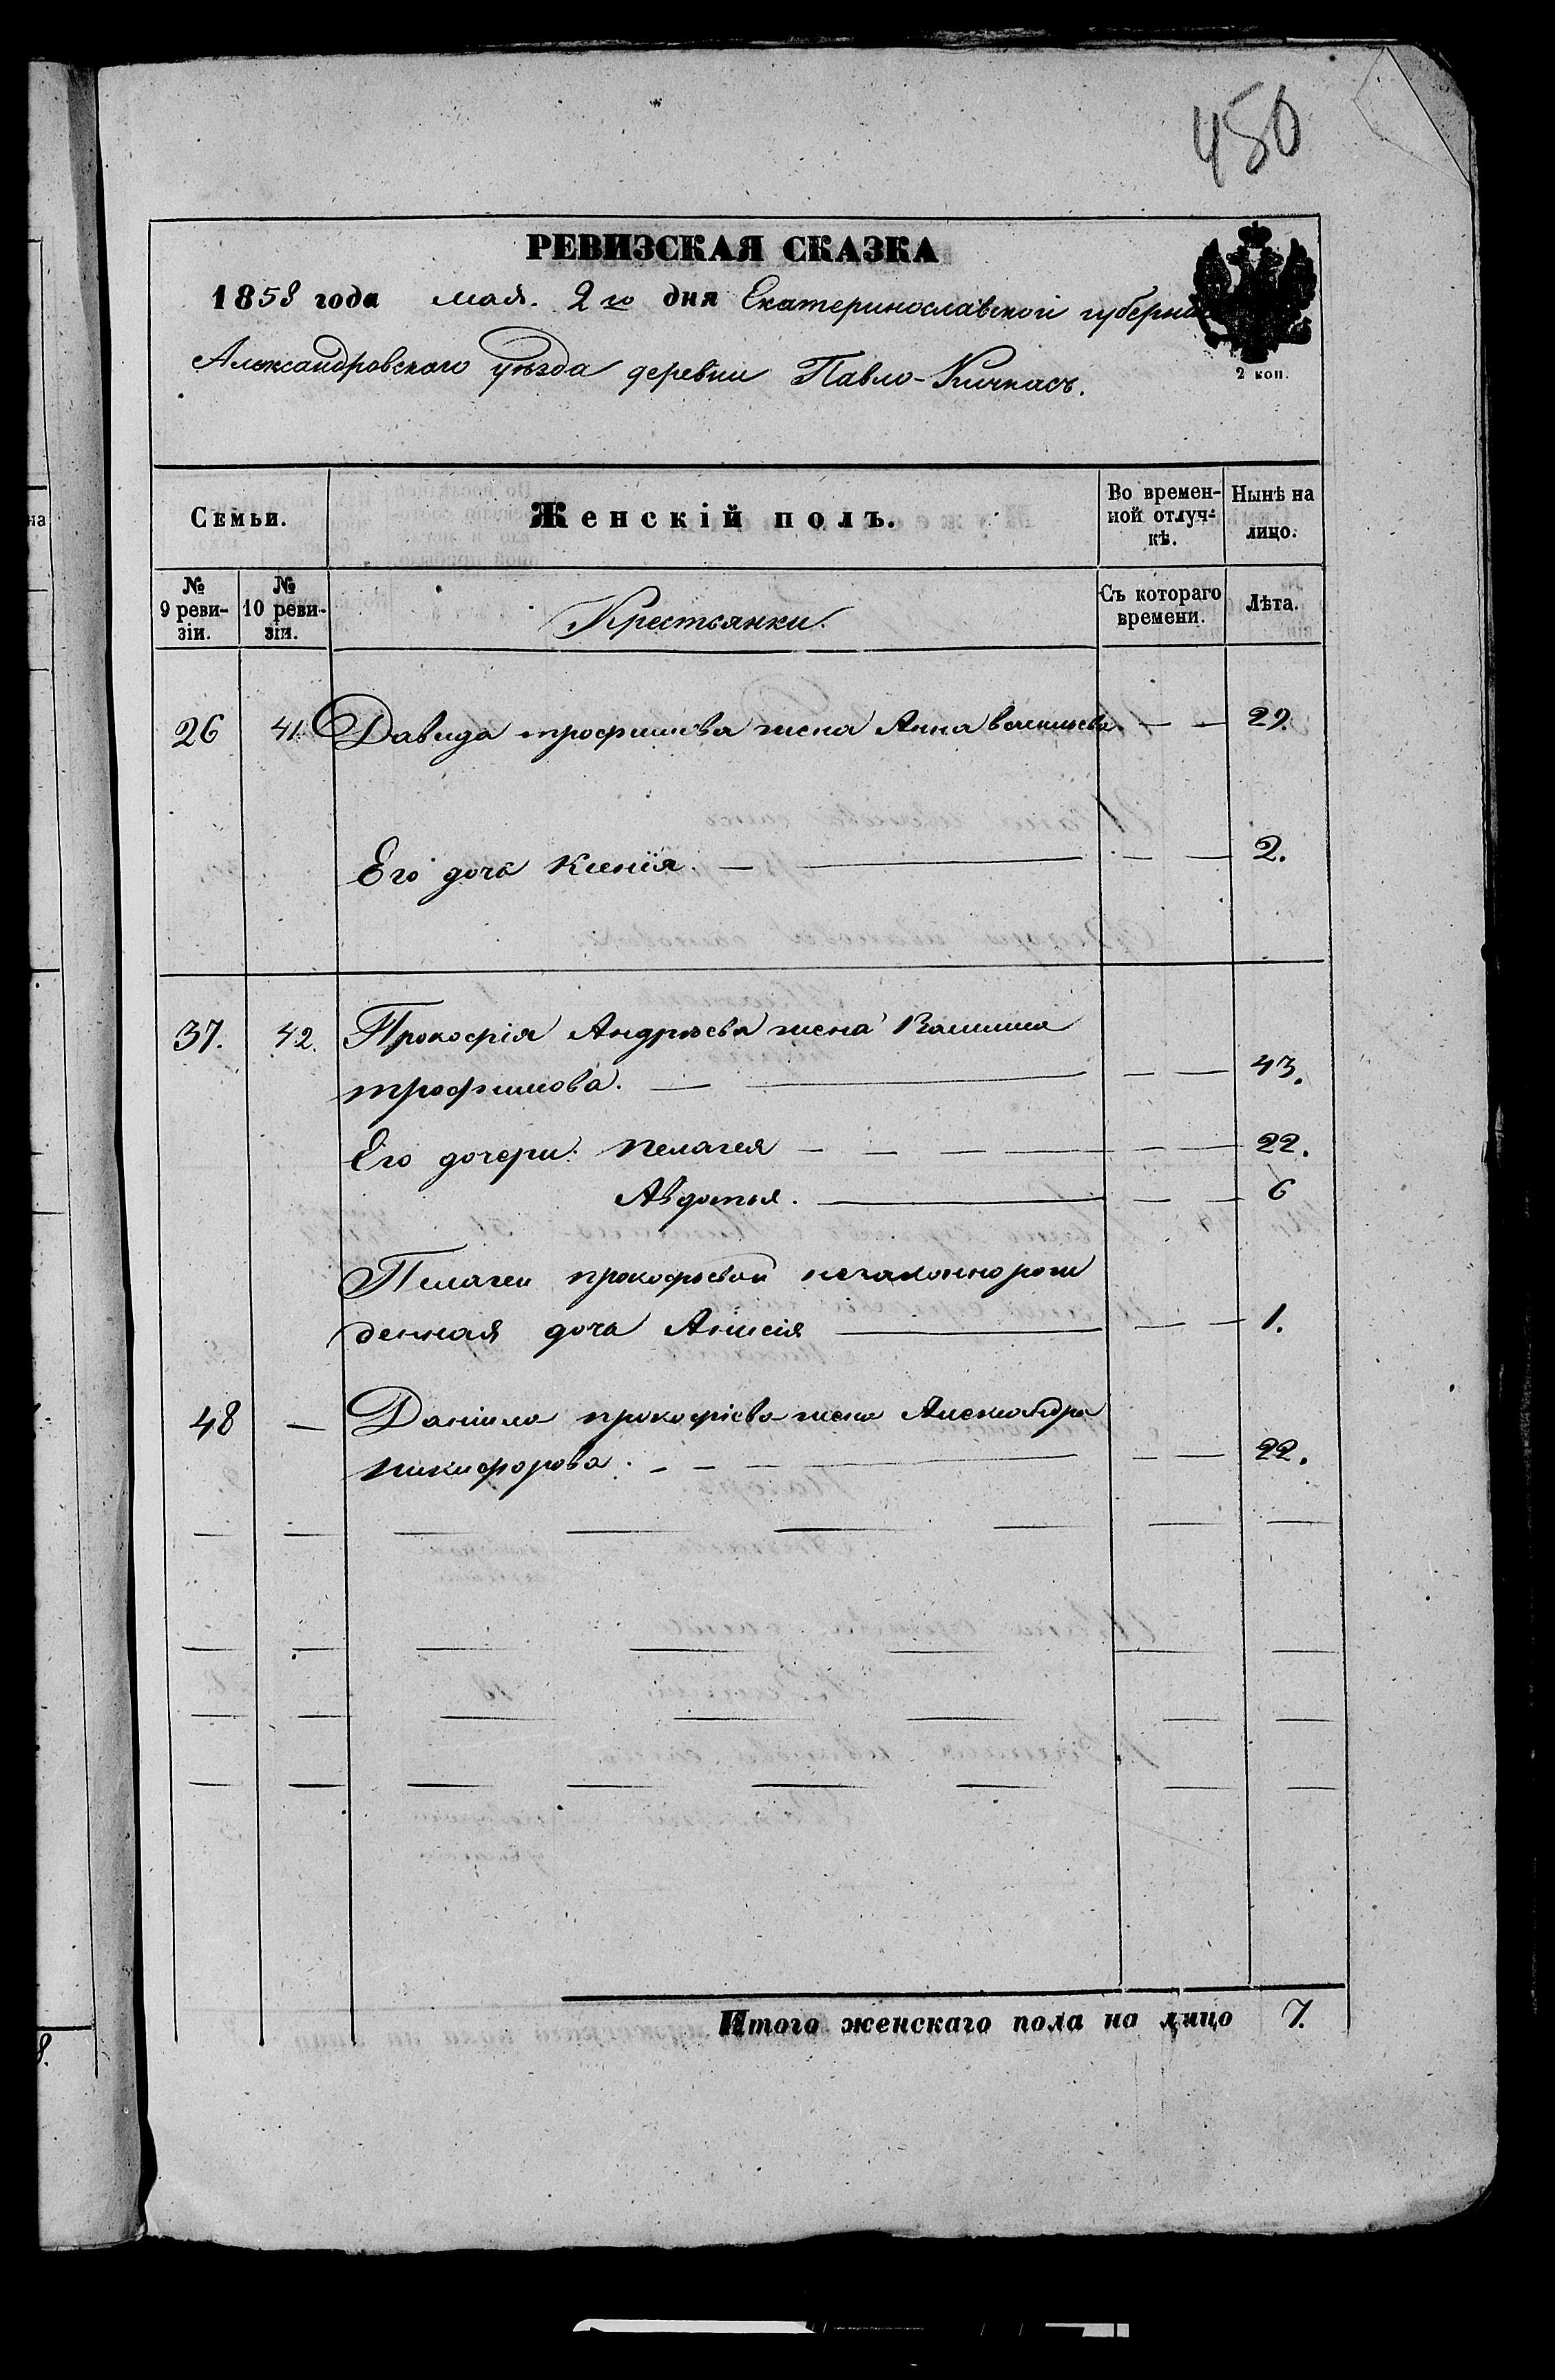 450
РЕВИЗСКАЯ СКАЗКА
1858 года мая 2го дня Екатеринославской губерніи
Александровскаго уѣзда деревни Павло-Кичкасъ.
2 коп.
Семьи.
Женскій полъ.
Во времен-
ной отлуч-
кѣ.
Нынѣ на
лицо.
№
9 реви-
зіи.
№
10 реви-
зіи.
Крестьянки.
Съ котораго
времени.
Лѣта.
26 41. Давида трофимова жена Анна васильева — — 29.
Его доча Ксенія. — — — — 2.
37. 42. Прокофія Андрѣева жена
трофимова. — — — — 43.
Его дочери: пелагея — — — — — — 22.
Авдотья. — — — 6
Пелагеи прокофьевой незаконнорож
денная доча Анисія — — — 1.
48 — Даніила прокофіева жена Александра
никифорова. — — — — — 22.
Итого женскаго пола на лицо 7.
на
8.